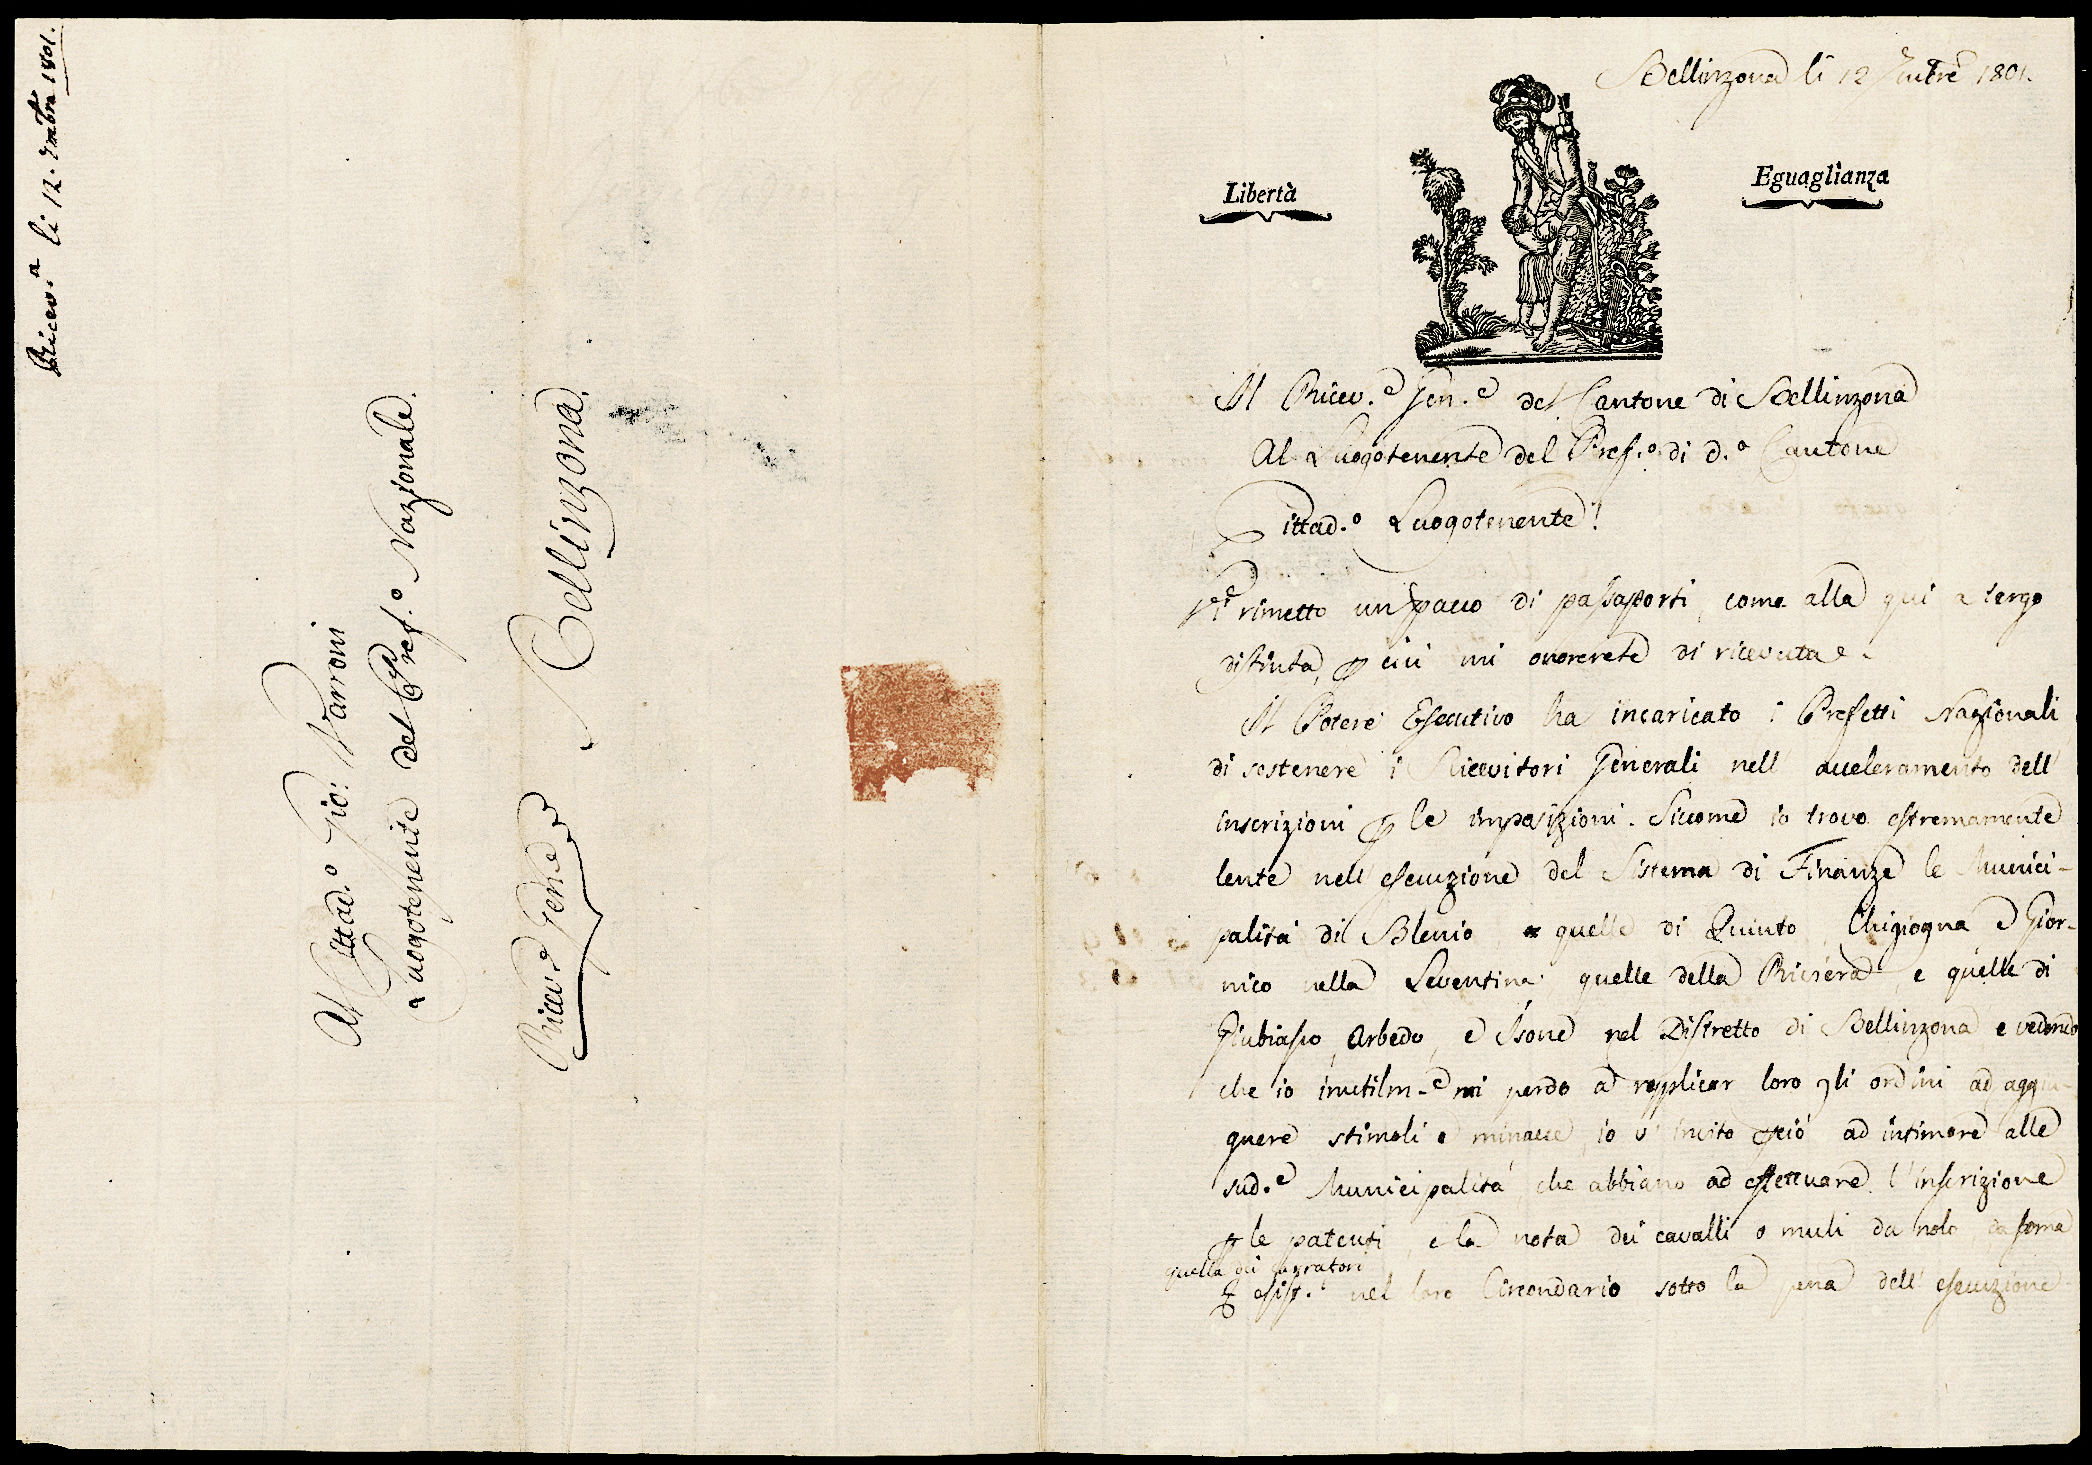 Ricev.a li 12. Xmbre 1801.
Al Cittad.o Gio: Varroni
Luogotenente del Pref.o Nazionale.
Bellinzona.
Ricev.e Gene.e
Bellinzona li 12 1801.
Libertà
Eguaglianza
Il Ricev.e Gen.e del Cantone di Bellinzona
Al Luogotenente del Pref.o di d.o Cantone
Cittad.o Luogotenente!
Vi rimetto un pacco di passaporti, come alla qui a tergo
distinta, cui mi onorerete di ricevuta.
Il Potere Esecutivo ha incaricato i Prefetti Nazionali
di sostenere i Ricevitori Generali nell acceleramento dell
inscrizioni le imposizioni. Siccome io trovo estremamente
lente nell esecuzione del Sistema di Finanze le Munici-
palità di Blenio quelle di Quinto, Chigiogna e Gior-
nico nella Leventina quelle della Riviera, e quelle di
Giubiasco, Arbedo, e Isone nel Distretto di Bellinzona e vedendo
che io inutilm-e mi perdo a replicar loro gli ordini ad aggiu-
gnere stimoli e minacce, io v' invito ad intimare alle
sud.e Municipalità che abbiano ad effettuare l'inscrizione
le patenti, e la nota dei cavalli o muli da nolo da soma
quella dei
esist.i nel loro Circondario sotto la pena dell' esecuzione